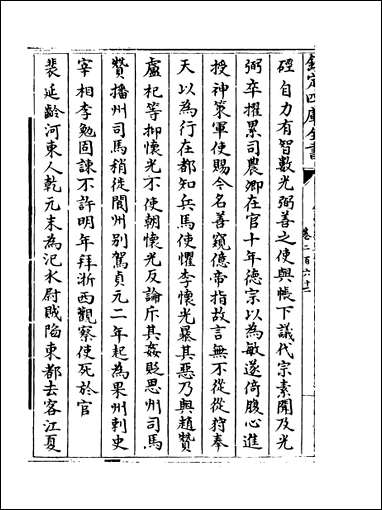 欽定四庫全書
卷二百六十
硜自力有智數光弼善之使與帳下議代宗素聞及光
弼卒擢累司農卿在官十年德宗以為敏遂倚腹心進
授神策軍使賜令名善窺億帝指故言無不從從狩奉
天以為行在都知兵馬使懼李懷光暴其惡乃與趙贊
盧杞等抑懷光不使朝懷光反論斥其姦貶恩州司馬
贊播州司馬稍徙閬州別駕貞元二年起為果州刺史
宰相李勉固諫不許明年拜浙西觀察使死於官
裴延齡河東人乾元末為汜水尉賊陷東都去客江夏